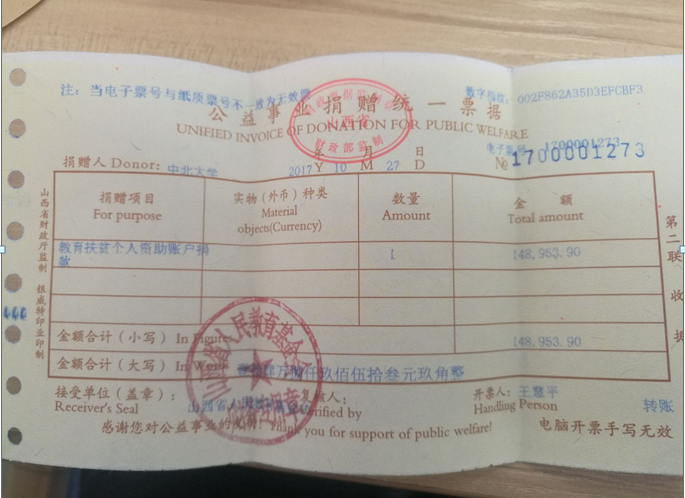 注：当电子票号与纸质票号不一致为无效票
数字指纹：002F862A35D3EFCBF3
公益事业捐赠统一票据
UNIFIED INVOICE OF DONATION FOR PUBLIC WELFARE
山西省
财政部监制
电子票号 1700001273
捐赠人 Donor: 中北大学
2017 年 Y 10 月 M 27 日 D
№ 1700001273
捐赠项目 For purpose
实物（外币）种类 Material objects(Currency)
数量 Amount
金额 Total amount
教育扶贫个人资助账户捐款
1
148,953.90
金额合计（小写） In Figure
148,953.90
金额合计（大写） In
肆万捌仟玖佰伍拾叁元玖角整
接受单位（盖章）： Receiver's Seal
山西省人民
山西省人民教育基金
复核人： Verified by
开票人： Handling Person 王慧平
转账
感谢您对公益事业的支持！ Thank you for support of public welfare!
电脑开票手写无效
山西省财政厅监制 银威特印业印制
第二联 收据